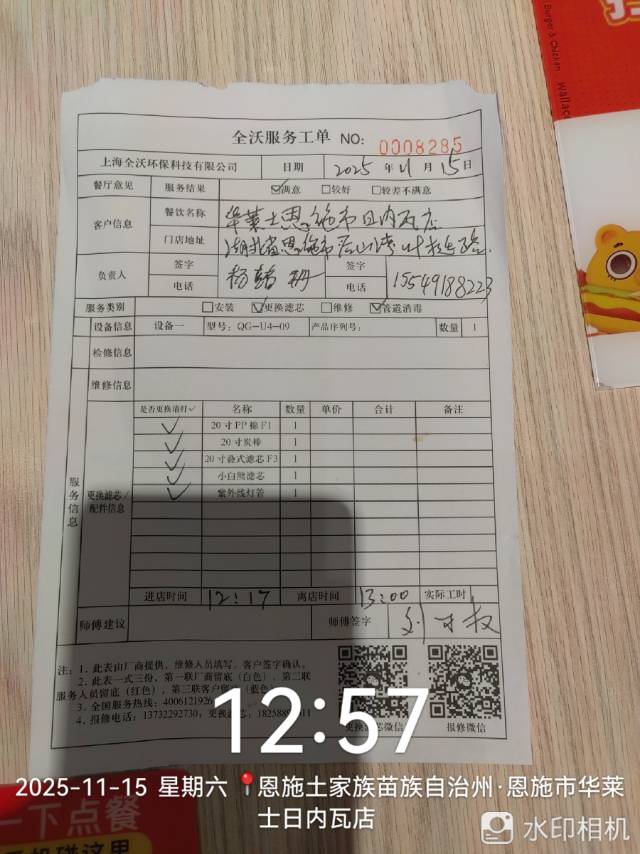 Burger & Chicken
wallace
全沃服务工单 NO: 0008285
上海全沃环保科技有限公司 日期 2025年11月15日
餐厅意见 服务结果 ☑满意 □较好 □较差不满意
客户信息 餐饮名称 华莱士恩施市日内瓦店
门店地址 湖北省恩施市
负责人 签字 杨 签字
电话 电话 15549188223
服务类别 □安装 ☑更换滤芯 □维修 ☑管道消毒
设备信息 设备一 型号: QG-U4-09 产品序列号: 数量 1
检修信息
维修信息
服务信息 更换滤芯/配件信息
是否更换请打✓ 名称 数量 单价 合计 备注
✓ 20寸PP棉F1 1
✓ 20寸炭棒 1
✓ 20寸叠式滤芯F3 1
✓ 小白熊滤芯 1
✓ 紫外线灯管 1
进店时间 12:17 离店时间 13:00 实际工时
师傅建议 师傅签字 刘
注: 1、此表由厂商提供, 维修人员填写, 客户签字确认。
2、此表一式三份, 第一联厂商留底(白色), 第二联
服务人员留底(红色), 第三联客户留
3、全国服务热线: 4006121926
4、报修电话: 13732292730, 更换滤芯: 18258
更换滤芯微信 报修微信
12:57
2025-11-15 星期六 恩施土家族苗族自治州·恩施市华莱
士日内瓦店
一下点餐
水印相机